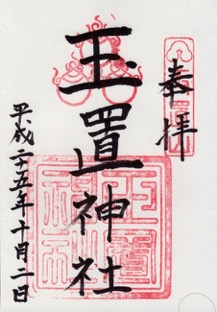 奉拝
玉置神社
平成二十五年十月二日